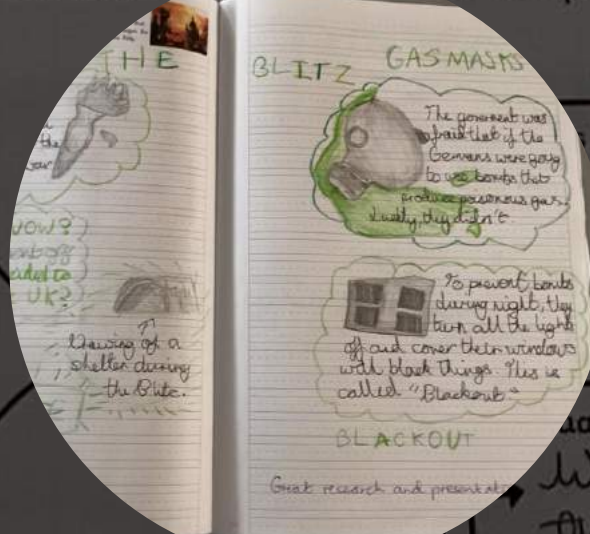 THE
the
war
NOW?
UK?
Drawing of a
shelter during
the Blitz.
BLITZ
GASMASKS
The goverment was
afraid that if the
Germans were going
to use bombs that
produce poisonous gas.
Luckly, they didn't.
To prevent bombs
during night, they
turn all the lights
off and cover their windows
with black things. This is
called "Blackout"
BLACKOUT
Great research and presentat